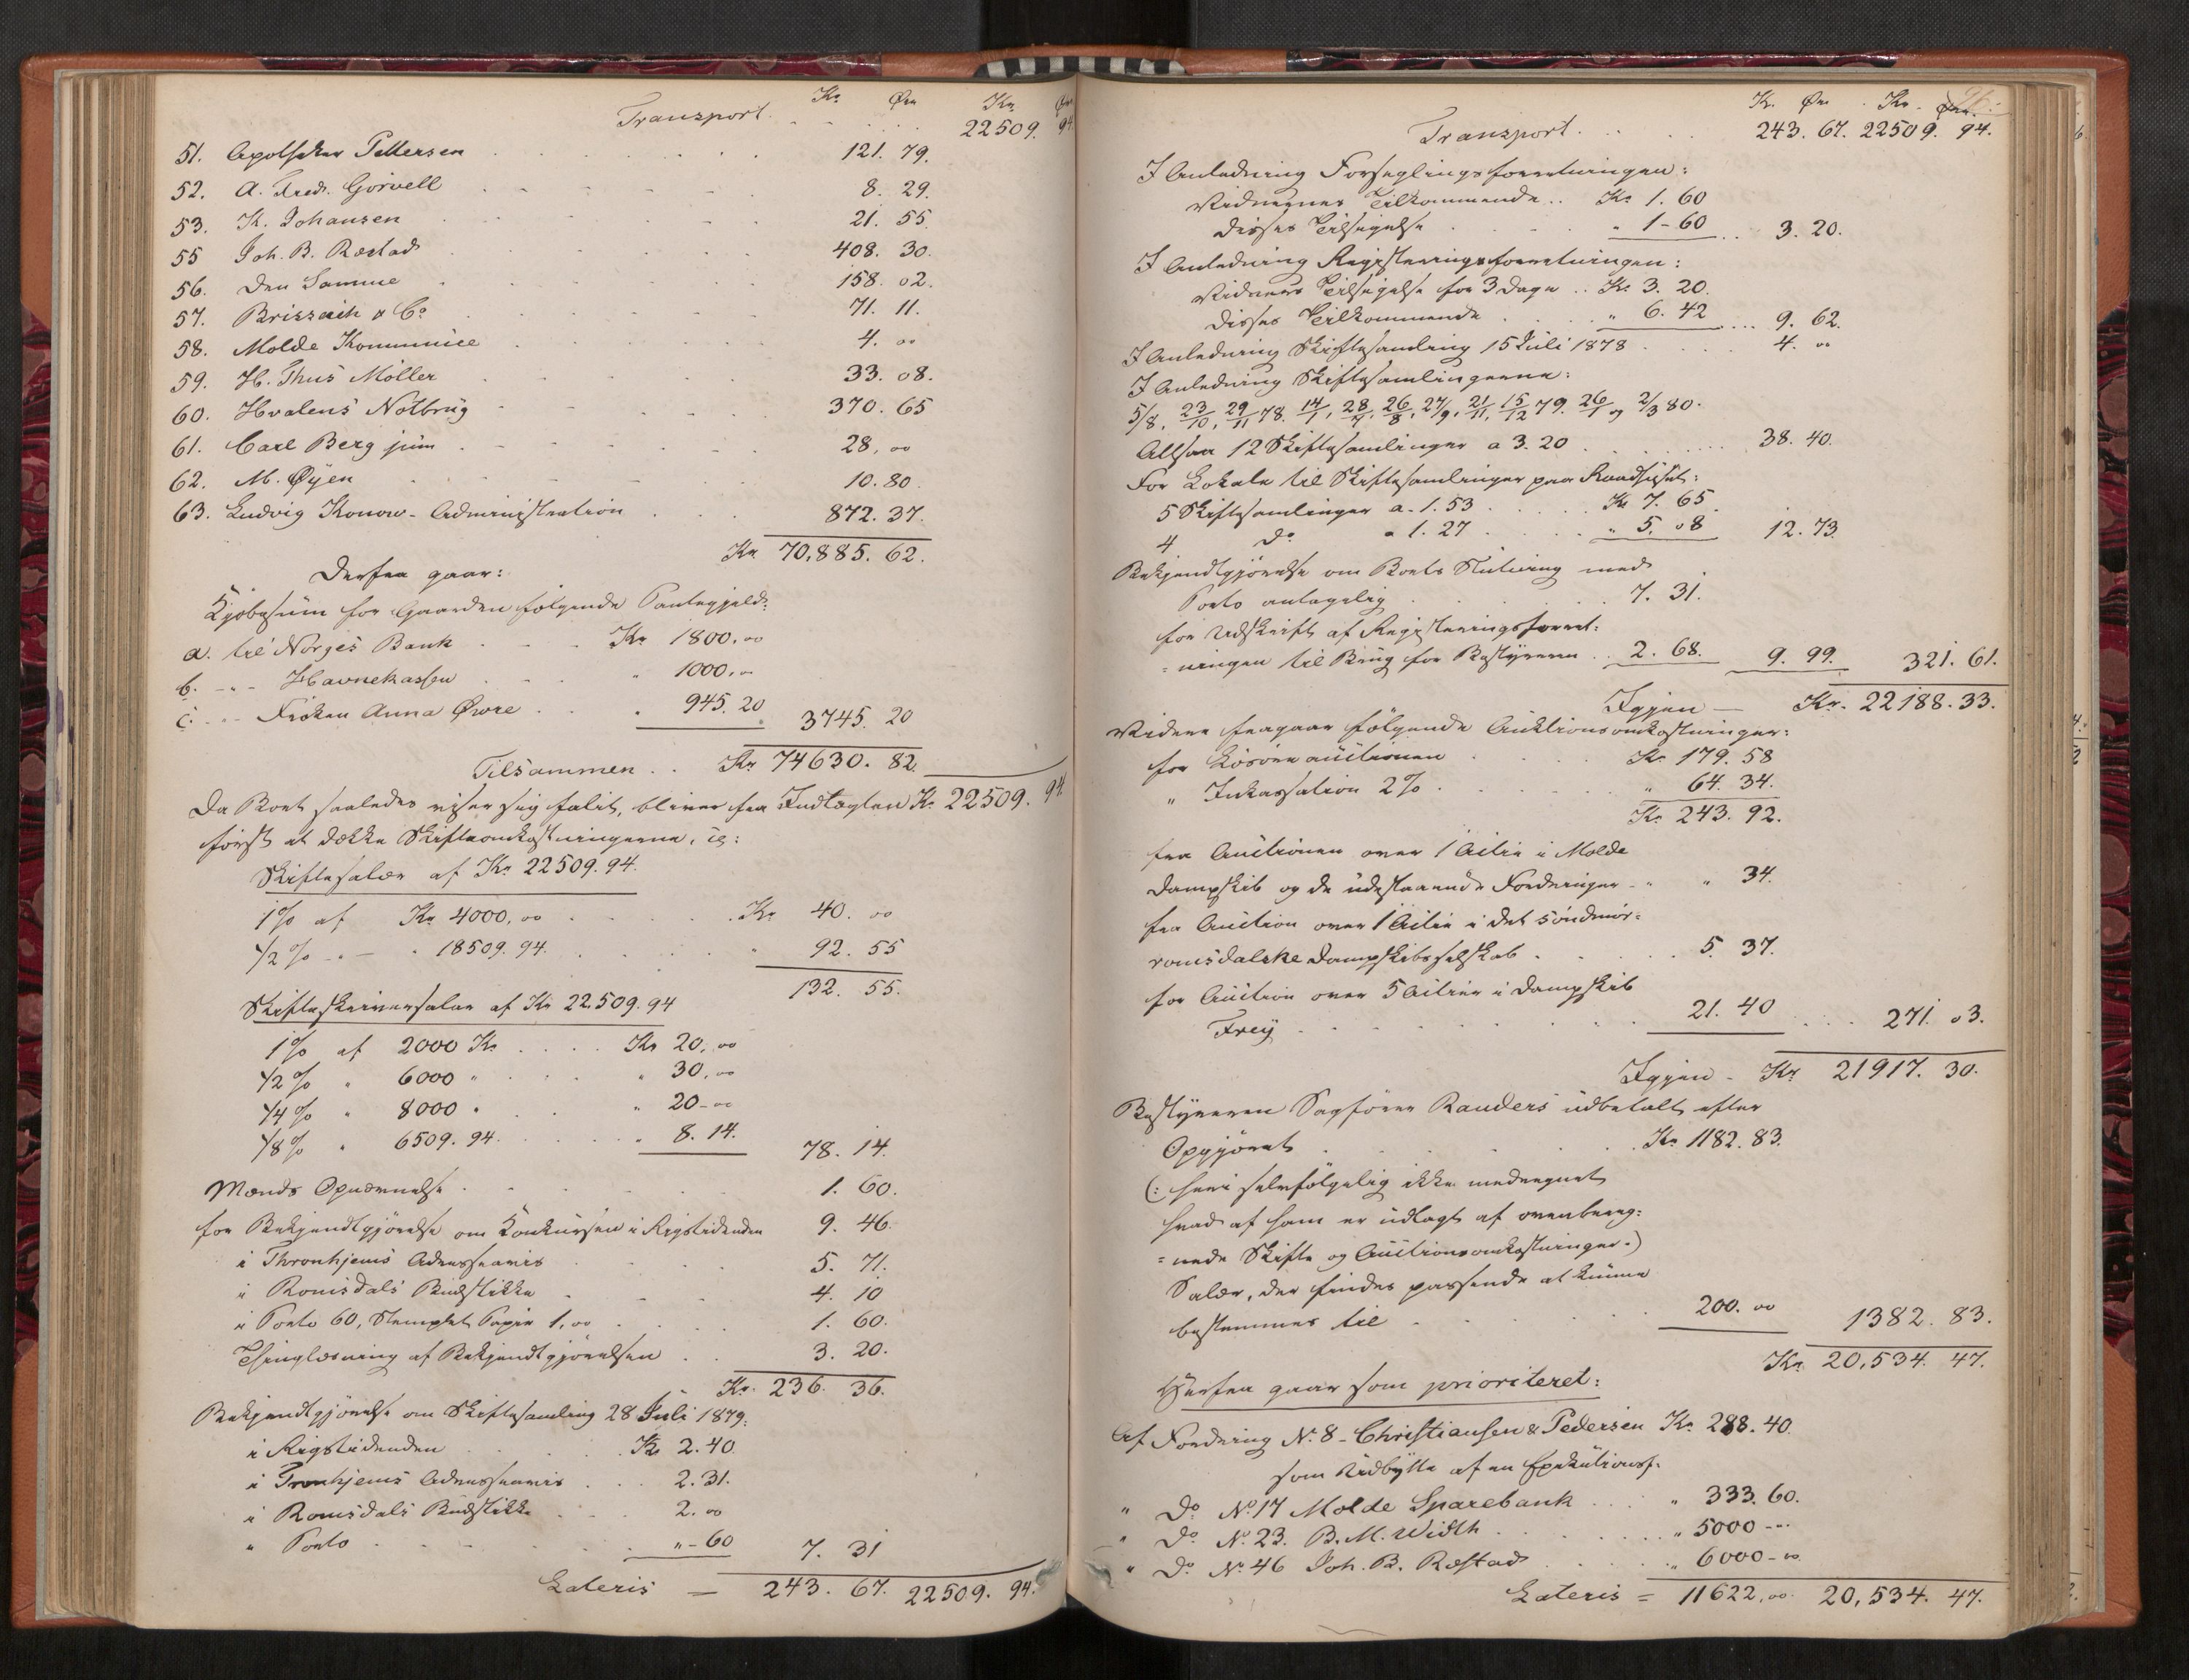 Kr Øre Kr. Øre
Transport 22509. 94.
51. Apotheker Pettersen 121. 79.
52. A. Fredr. Gørvell 8. 29.
53. K. Johansen 21. 55.
55 Joh. B. Ræstad 408. 30.
56. Den Samme 158. 02.
57. Brissach & Co 71. 11.
58. Molde Kommune 4. 00
59. H. Thiis Møller 33. 08.
60. Hvalens Notbrug 370. 65
61. Carl Berg jun 28, 00
62. M. Øyen 10. 80
63. Ludvig Konow - Administration 872. 37.
Kr 70,885. 62.
Derfra gaar:
Kjøbesum for Gaarden følgende Pantegjeld:
a. til Norges Bank Kr 1800. 00
b. - " - Havnekassen " 1000. 00
c. - " - Frøken Anna Øwre " 945. 20 3745. 20
Tilsammen .. Kr 74630. 82.
Da Boet saaledes viser sig falit, bliver fra Indtægten Kr. 22509. 94.
først at dække Skifteomkostningerne, ig:
Skiftesalær af Kr. 22509. 94.
1% af Kr 4000, 00 Kr 40. 00
1/2% - " - " 18509. 94. " 92. 55
132. 55.
Skifteskriversalær af Kr 22.509. 94
1% af 2000 Kr. Kr 20, 00
1/2% " 6000 " " 30, 00
1/4% " 8000 " " 20 - 00
1/8% " 6509. 94. " 8. 14. 78. 14.
Mænds Opnævnelse 1. 60.
for Bekjendtgjørelse om Konkursen i Rigstidenden 9. 46.
i Thronhjems Adresseavis 5. 71.
i Romsdals Budstikke 4. 10
i Porto 60, Stemplet Papir 1, 00 1. 60.
Thinglæsning af Bekjendtgjørelsen 3. 20.
Kr. 236. 36.
Bekjendtgjørelse om Skiftesamling 28 Juli 1879:
i Rigstidenden Kr 2. 40.
i Tronhjems Adresseavis 2. 31.
i Romsdals Budstikke 2. 00
" Porto " - 60 7. 31
Lateris = 243. 67. 22509. 94.
Kr. Øre Kr. Øre
Transport 243. 67. 22509. 94.
I Anledning Forseglingsforretningen:
Vidnernes Tilkommende .. Kr 1. 60
disses Tilsigelse " 1 - 60 3. 20.
I Anledning Registreringsforretningen:
Vidners Tilsigelse for 3 Dage .. Kr 3. 20.
disses Tilkommende " 6. 42 9. 62.
I Anledning Skiftesamling 15 Juli 1878 4. 00
I Anledning Skiftesamlingerne:
5/8, 23/10, 29/11 78. 14/1, 28/7, 26/8, 27/9, 21/11, 15/12 79. 26/1 og 2/3 80.
Altsaa 12 Skiftesamlinger a 3. 20 38. 40.
For Lokale til Skiftesamlinger paa Raadhuset:
5 Skiftesamlinger a - 1. 53 Kr 7. 65.
4 Do a 1. 27 " 5. 08 12. 73.
Bekjendtgjørelse om Boets Slutning med
Porto antagelig 7. 31.
for Udskrift af Registreringsforret=
=ningen til Brug for Bestyreren .. 2. 68. 9. 99. 321. 61.
Igjen — Kr. 22188. 33.
Videre fragaar følgende Auktionsomkostninger:
for Løsøreauctionen Kr 179. 58
" Inkassation 2% " 64. 34.
Kr. 243. 92.
fra Auctionen over 1 Actie i Molde
Dampskib og de udestaaende Fordringer - " " 34.
fra Auction over 1 Actie i det søndmør=
romsdalske Dampskibsselskab 5. 37.
for Auction over 5 Actier i Dampskib
Frey 21. 40 271. 03.
Igjen - Kr 21917. 30.
Bestyreren Sagfører Randers udbetalt efter
Opgjøret Kr 1182. 83.
(: heri selvfølgelig ikke medregnet
hvad af ham er udlagt af ovenbereg=
=nede Skifte og Auctionsomkostninger.)
Salær, der findes passende at kunne
bestemmes til 200. 00 1382. 83.
Kr. 20,534. 47.
Herfra gaar som prioriteret:
Af Fordring No. 8 - Christiansen & Pedersen Kr. 288. 40.
som Udbytte af en Exekutionsf:
" Do No 17 Molde Sparebank " 333. 60.
" Do No. 23. B. M. Width " 5000 - "
" Do No 46 Joh. B. Ræstad " 6000 - 00
Lateris = 11622, 00. 20,534. 47.